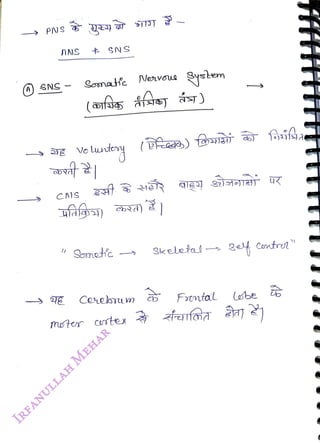 → PNS के मुख्य दो भाग हैं -
ANS + SNS
Ⓐ SNS - Somatic Nervous System →
(कायिक तंत्रिका तंत्र)
→ यह Voluntory (ऐच्छिक) क्रियाओं को नियंत्रित
करती है|
→ CNS इसी के सहारे वाहय उत्तेजनाओं पर
प्रतिक्रिया करता है|
" Somatic → Skeletal → Self Control "
→ यह Cerebrum के Frontal lobe के
motor cortex से संचालित होता है|
IRFANULLAH MEHAR